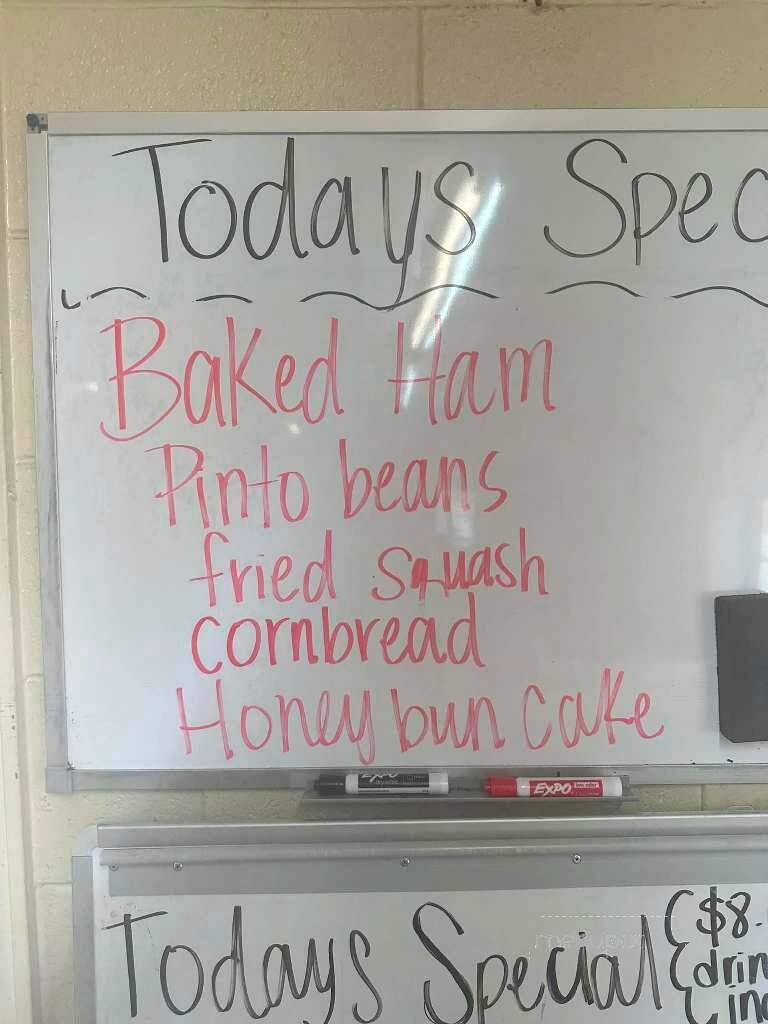 Todays Spec
Baked Ham
Pinto beans
fried squash
cornbread
Honey bun cake
EXPO
EXPO
Todays Special
($8.
drin
inc
menupix